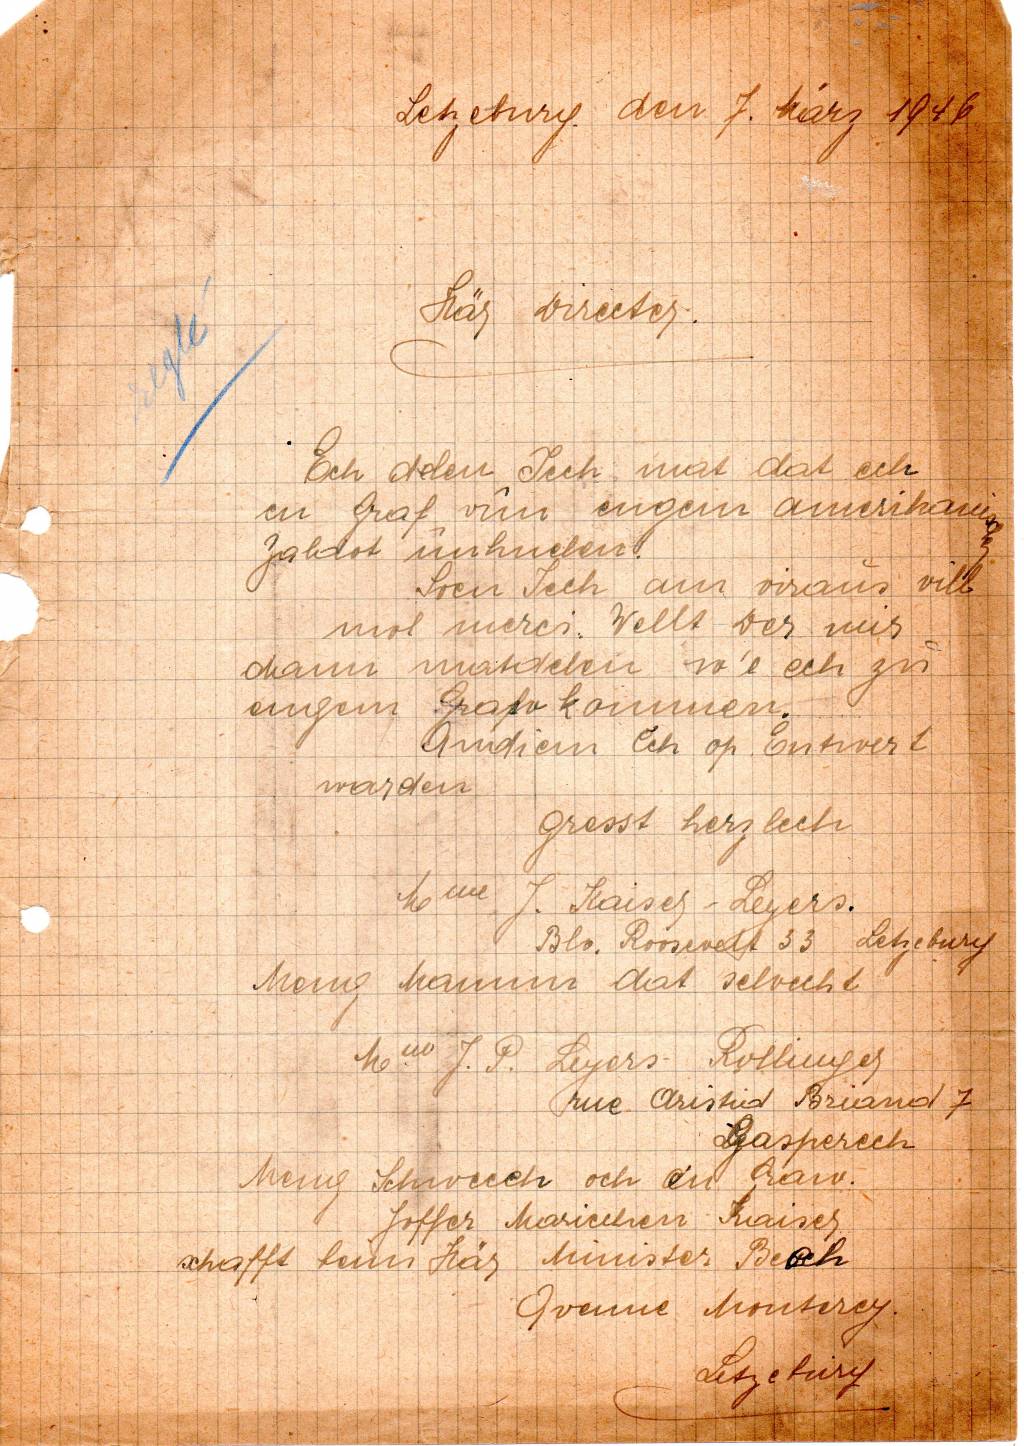 Letzeburg den 7. März 1946
Här Director.
reglé
Ech delen Iech mat dat ech
en Graf vun engem amerikanischen
Zaldot unhuelen.
Soen Iech am viraus vill
mol merci. Wellt Der mir
dann matdelen w'e ech zu
engem Graf kommen.
Andiem Ech op Entwert
warden
gresst herzlech
Mme J. Kaiser-Leyers.
Blv. Roosevelt 33 Letzeburg
Meng Mamm dat selwecht
Mme J. P. Leyers-Rollinger
rue Aristid Briand 7
Gasperech
Meng Schwecch och en Graw.
Joffer Mariechen Kaiser
schafft beim Här Minister Bech
Avenue Monterey.
Letzeburg